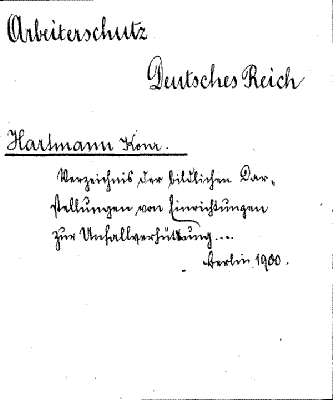 Arbeiterschutz
Deutsches Reich
Hartmann Konr.
Verzeichnis der bildlichen Dar-
stellungen von Einrichtungen
zur Unfallverhüttung...
Berlin 1900.